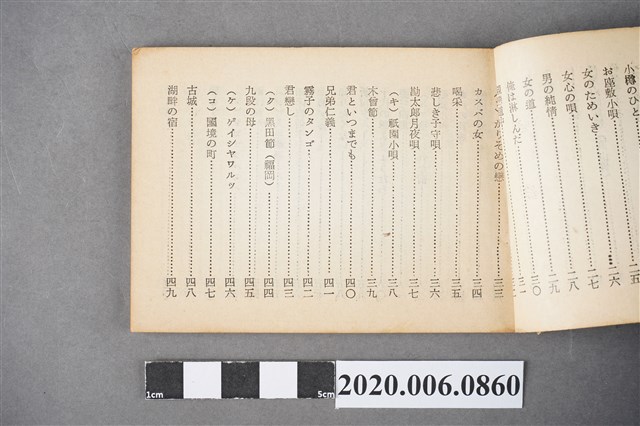 小樽のひと……二五
お座敷小唄……二六
女のためいき……二七
女心の唄……二八
男の純情……二九
女の道……三〇
俺は淋しんだ……三一
りそめの戀……三三
カスバの女……三四
喝采……三五
悲しき子守唄……三六
勘太郎月夜唄……三七
（キ）祇園小唄……三八
木曾節……三九
君といつまでも……四〇
兄弟仁義……四一
霧子のタンゴ……四二
君戀し……四三
（ク）黒田節（福岡）……四四
九段の母……四五
（ケ）ゲイシヤワルツ……四六
（コ）國境の町……四七
古城……四八
湖畔の宿……四九
1cm
5cm
2020.006.0860